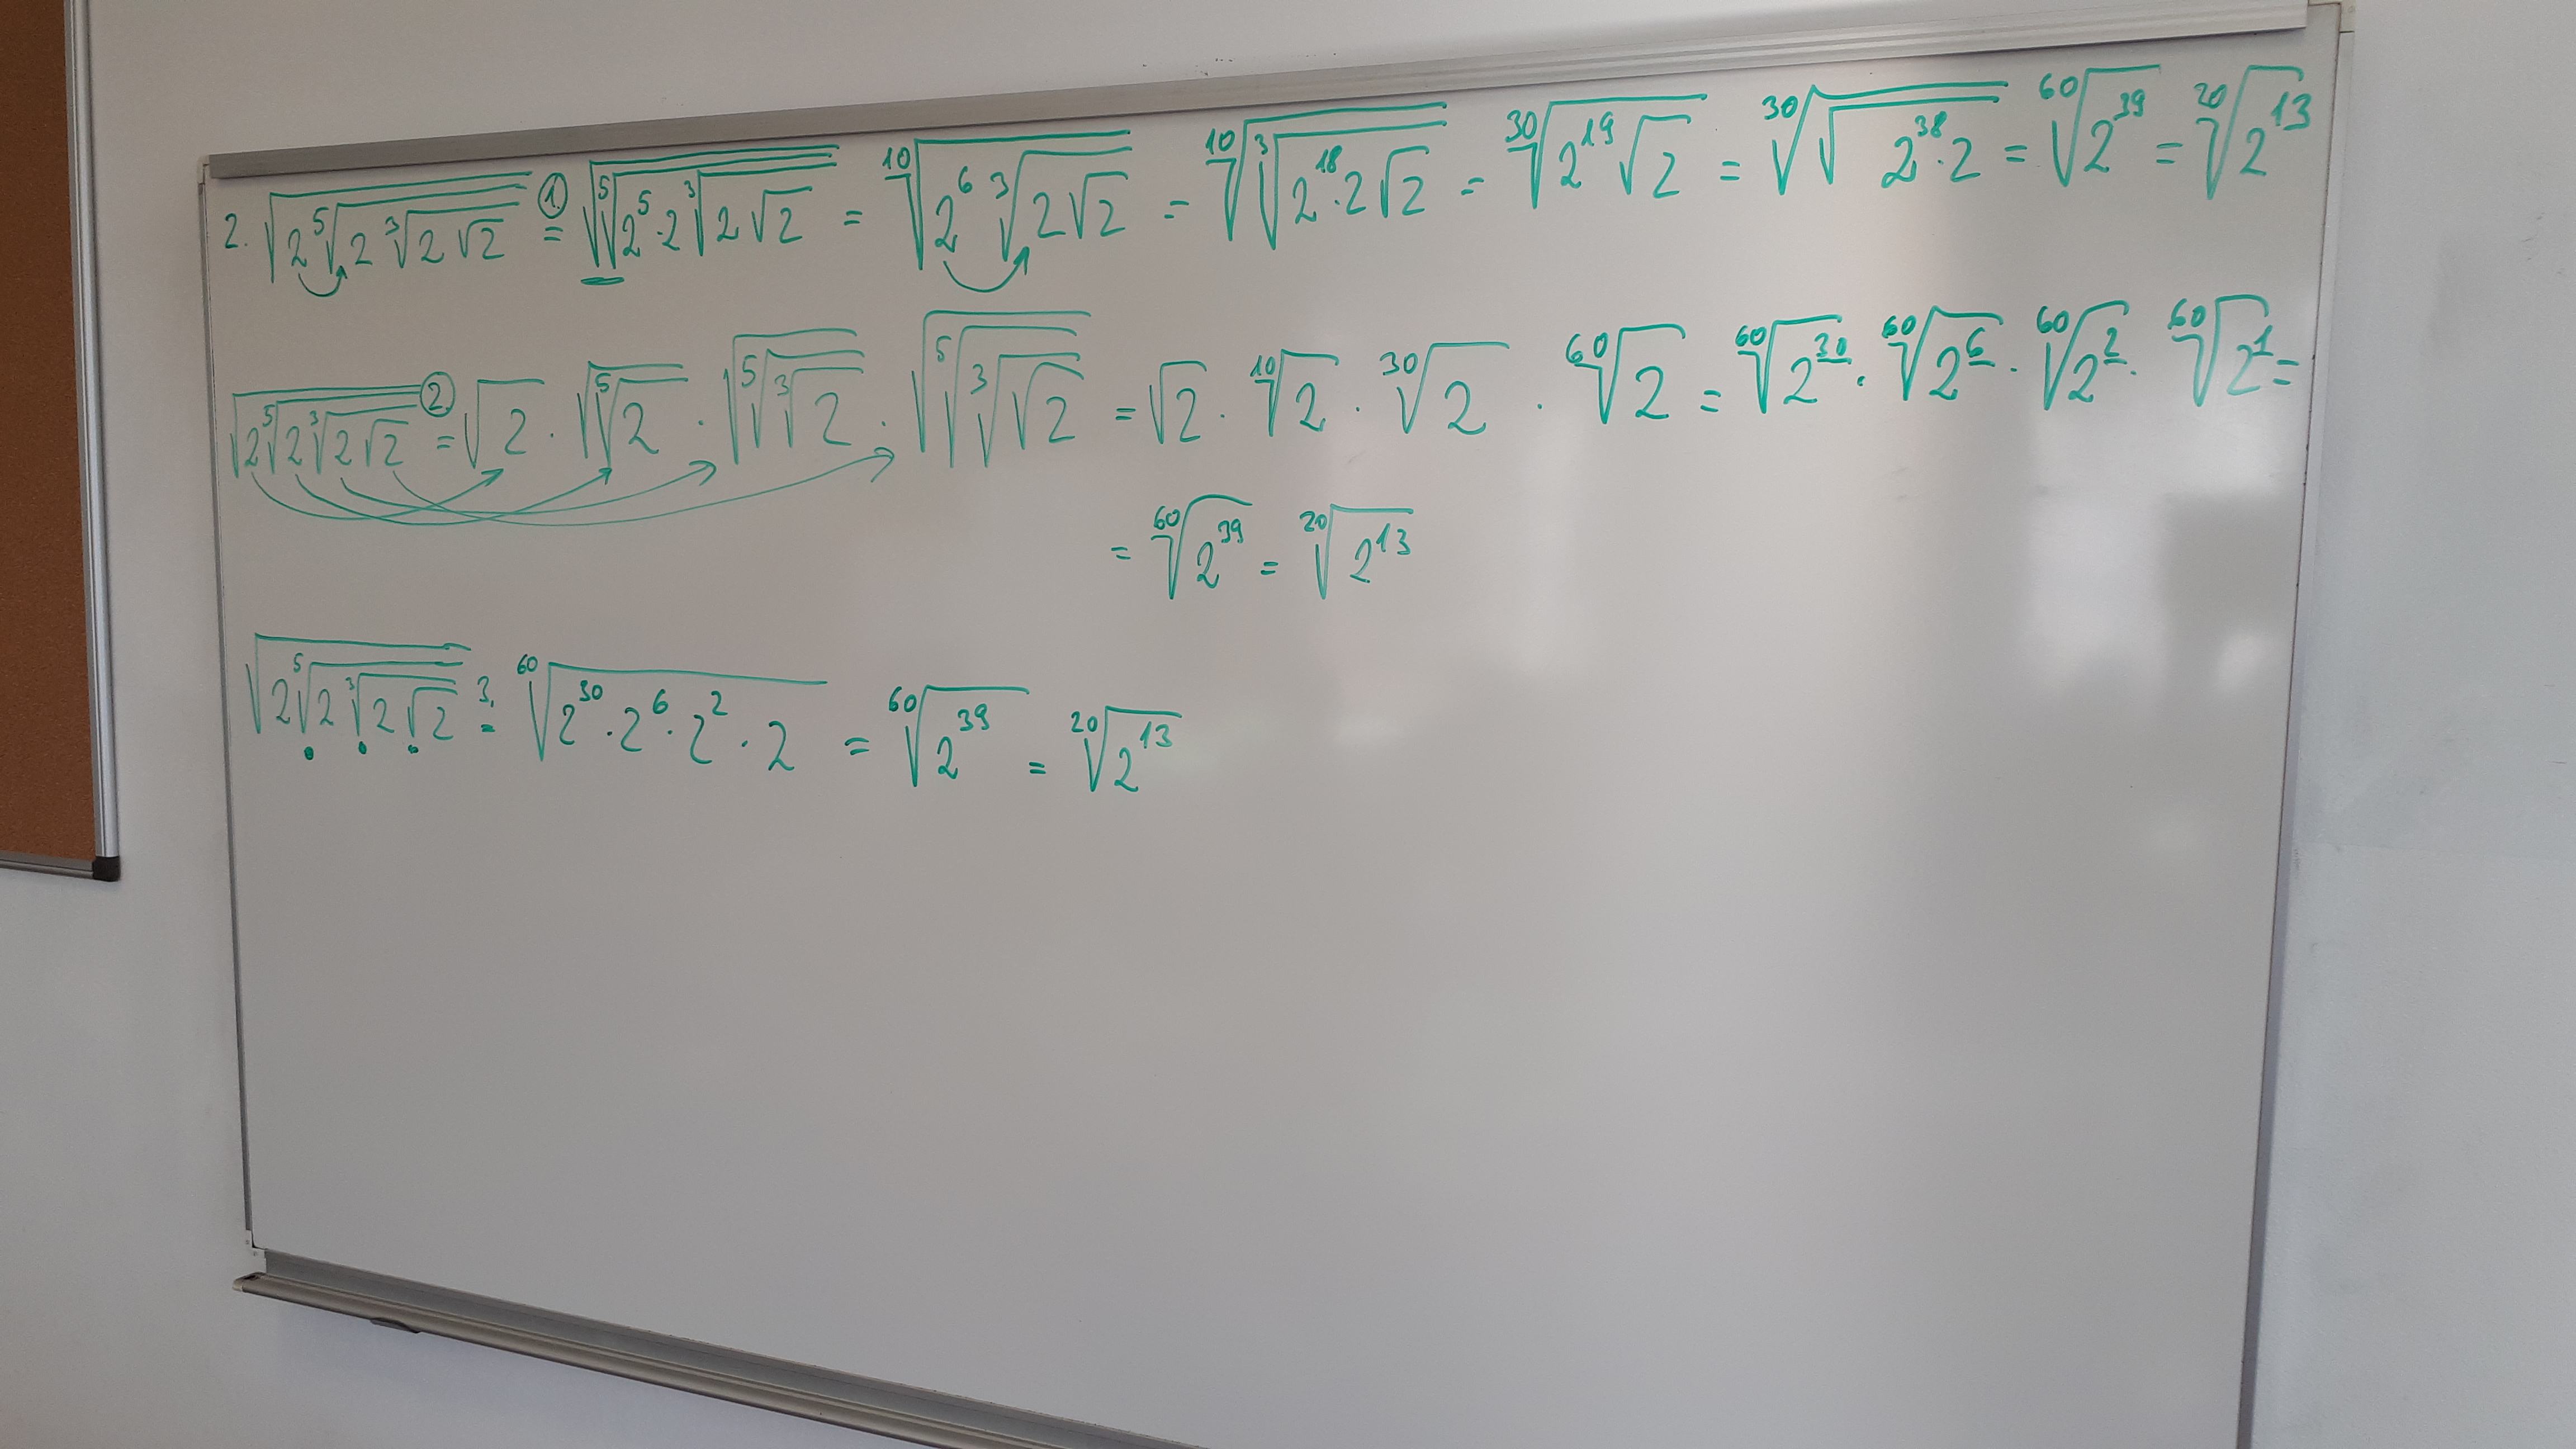 2. √(2 ⁵√(2 ³√(2 √2))) ①= √(⁵√(2⁵·2 ³√(2 √2))) = ¹⁰√(2⁶ ³√(2√2)) = ¹⁰√(³√(2¹⁸·2√2)) = ³⁰√(2¹⁹ √2) = ³⁰√(√(2³⁸·2)) = ⁶⁰√(2³⁹) = ²⁰√(2¹³)
√(2 ⁵√(2 ³√(2 √2))) ②= √2 · √(⁵√2) · √(⁵√(³√2)) · √(⁵√(³√(√2))) = √2 · ¹⁰√2 · ³⁰√2 · ⁶⁰√2 = ⁶⁰√(2³⁰) · ⁶⁰√(2⁶) · ⁶⁰√(2²) · ⁶⁰√(2¹) =
= ⁶⁰√(2³⁹) = ²⁰√(2¹³)
√(2 ⁵√(2 ³√(2 √2))) 3.= ⁶⁰√(2³⁰·2⁶·2²·2) = ⁶⁰√(2³⁹) = ²⁰√(2¹³)